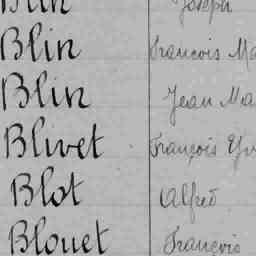 Blin Joseph
Blin François Ma
Blin Jean Ma
Blivet François Yv
Blot Alfred
Blouet François